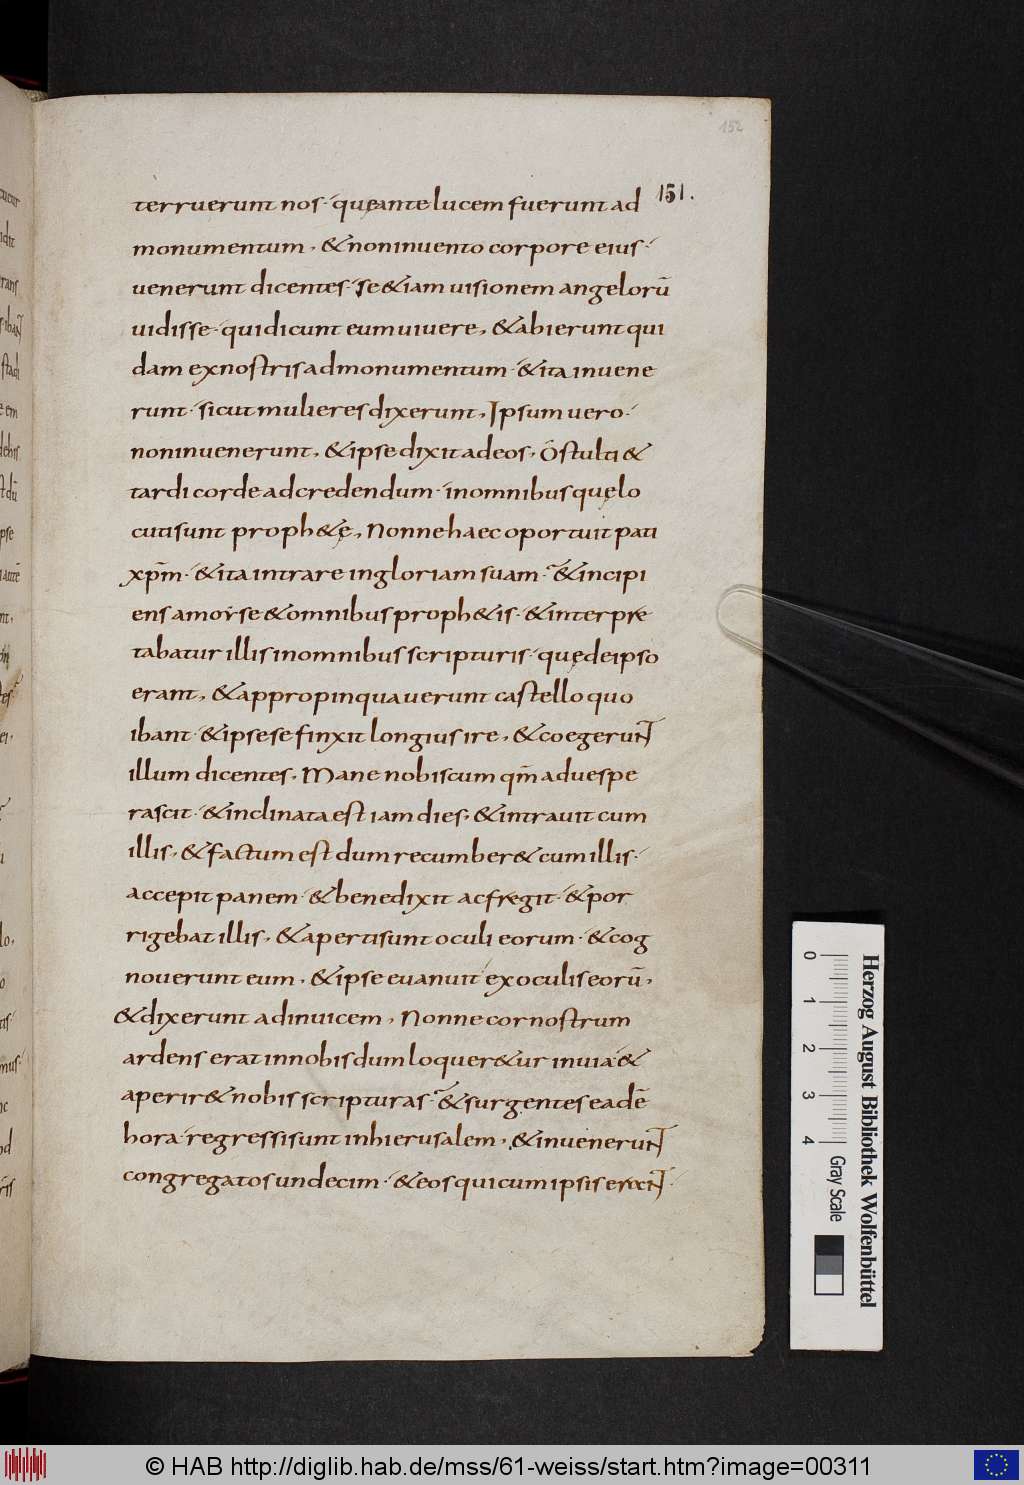 152
151.
terruerunt nos· quęante lucem fuerunt ad
monumentum, & noninuento corpore eius·
uenerunt dicentes· se &iam uisionem angelorū
uidisse· quidicunt eum uiuere, &abierunt qui
dam exnostris admonumentum· &ita inuene
runt· sicut mulieres dixerunt, Ipsum uero·
noninuenerunt, &ipse dixit adeos, O stulti &
tardi corde adcredendum· inomnibus quę lo
cuti sunt proph&ę, Nonne haec oportuit pati
xp̄m· &ita intrare ingloriam suam· &incipi
ens amoyse &omnibus proph&is· &interpre
tabatur illis inomnibus scripturis· quę deipso
erant, &appropinquauerunt castello quo
ibant· &ipse se finxit longius ire, &coegerunt
illum dicentes, Mane nobiscum qm̄ aduespe
rascit· &inclinata est iam dies, &intrauit cum
illis, &factum est dum recumber& cum illis·
accepit panem· &benedixit ac fregit· &por
rigebat illis, &aperti sunt oculi eorum· &cog
nouerunt eum, &ipse euanuit exoculis eorū,
&dixerunt adinuicem, Nonne cor nostrum
ardens erat innobis dum loquer&ur inuia &
aperir& nobis scripturas· &surgentes eadē
hora· regressi sunt inhierusalem, &inuenerunt
congregatos undecim· &eos qui cum ipsis erant·
0 1 2 3 4
Gray Scale
Herzog August Bibliothek Wolfenbüttel
© HAB http://diglib.hab.de/mss/61-weiss/start.htm?image=00311